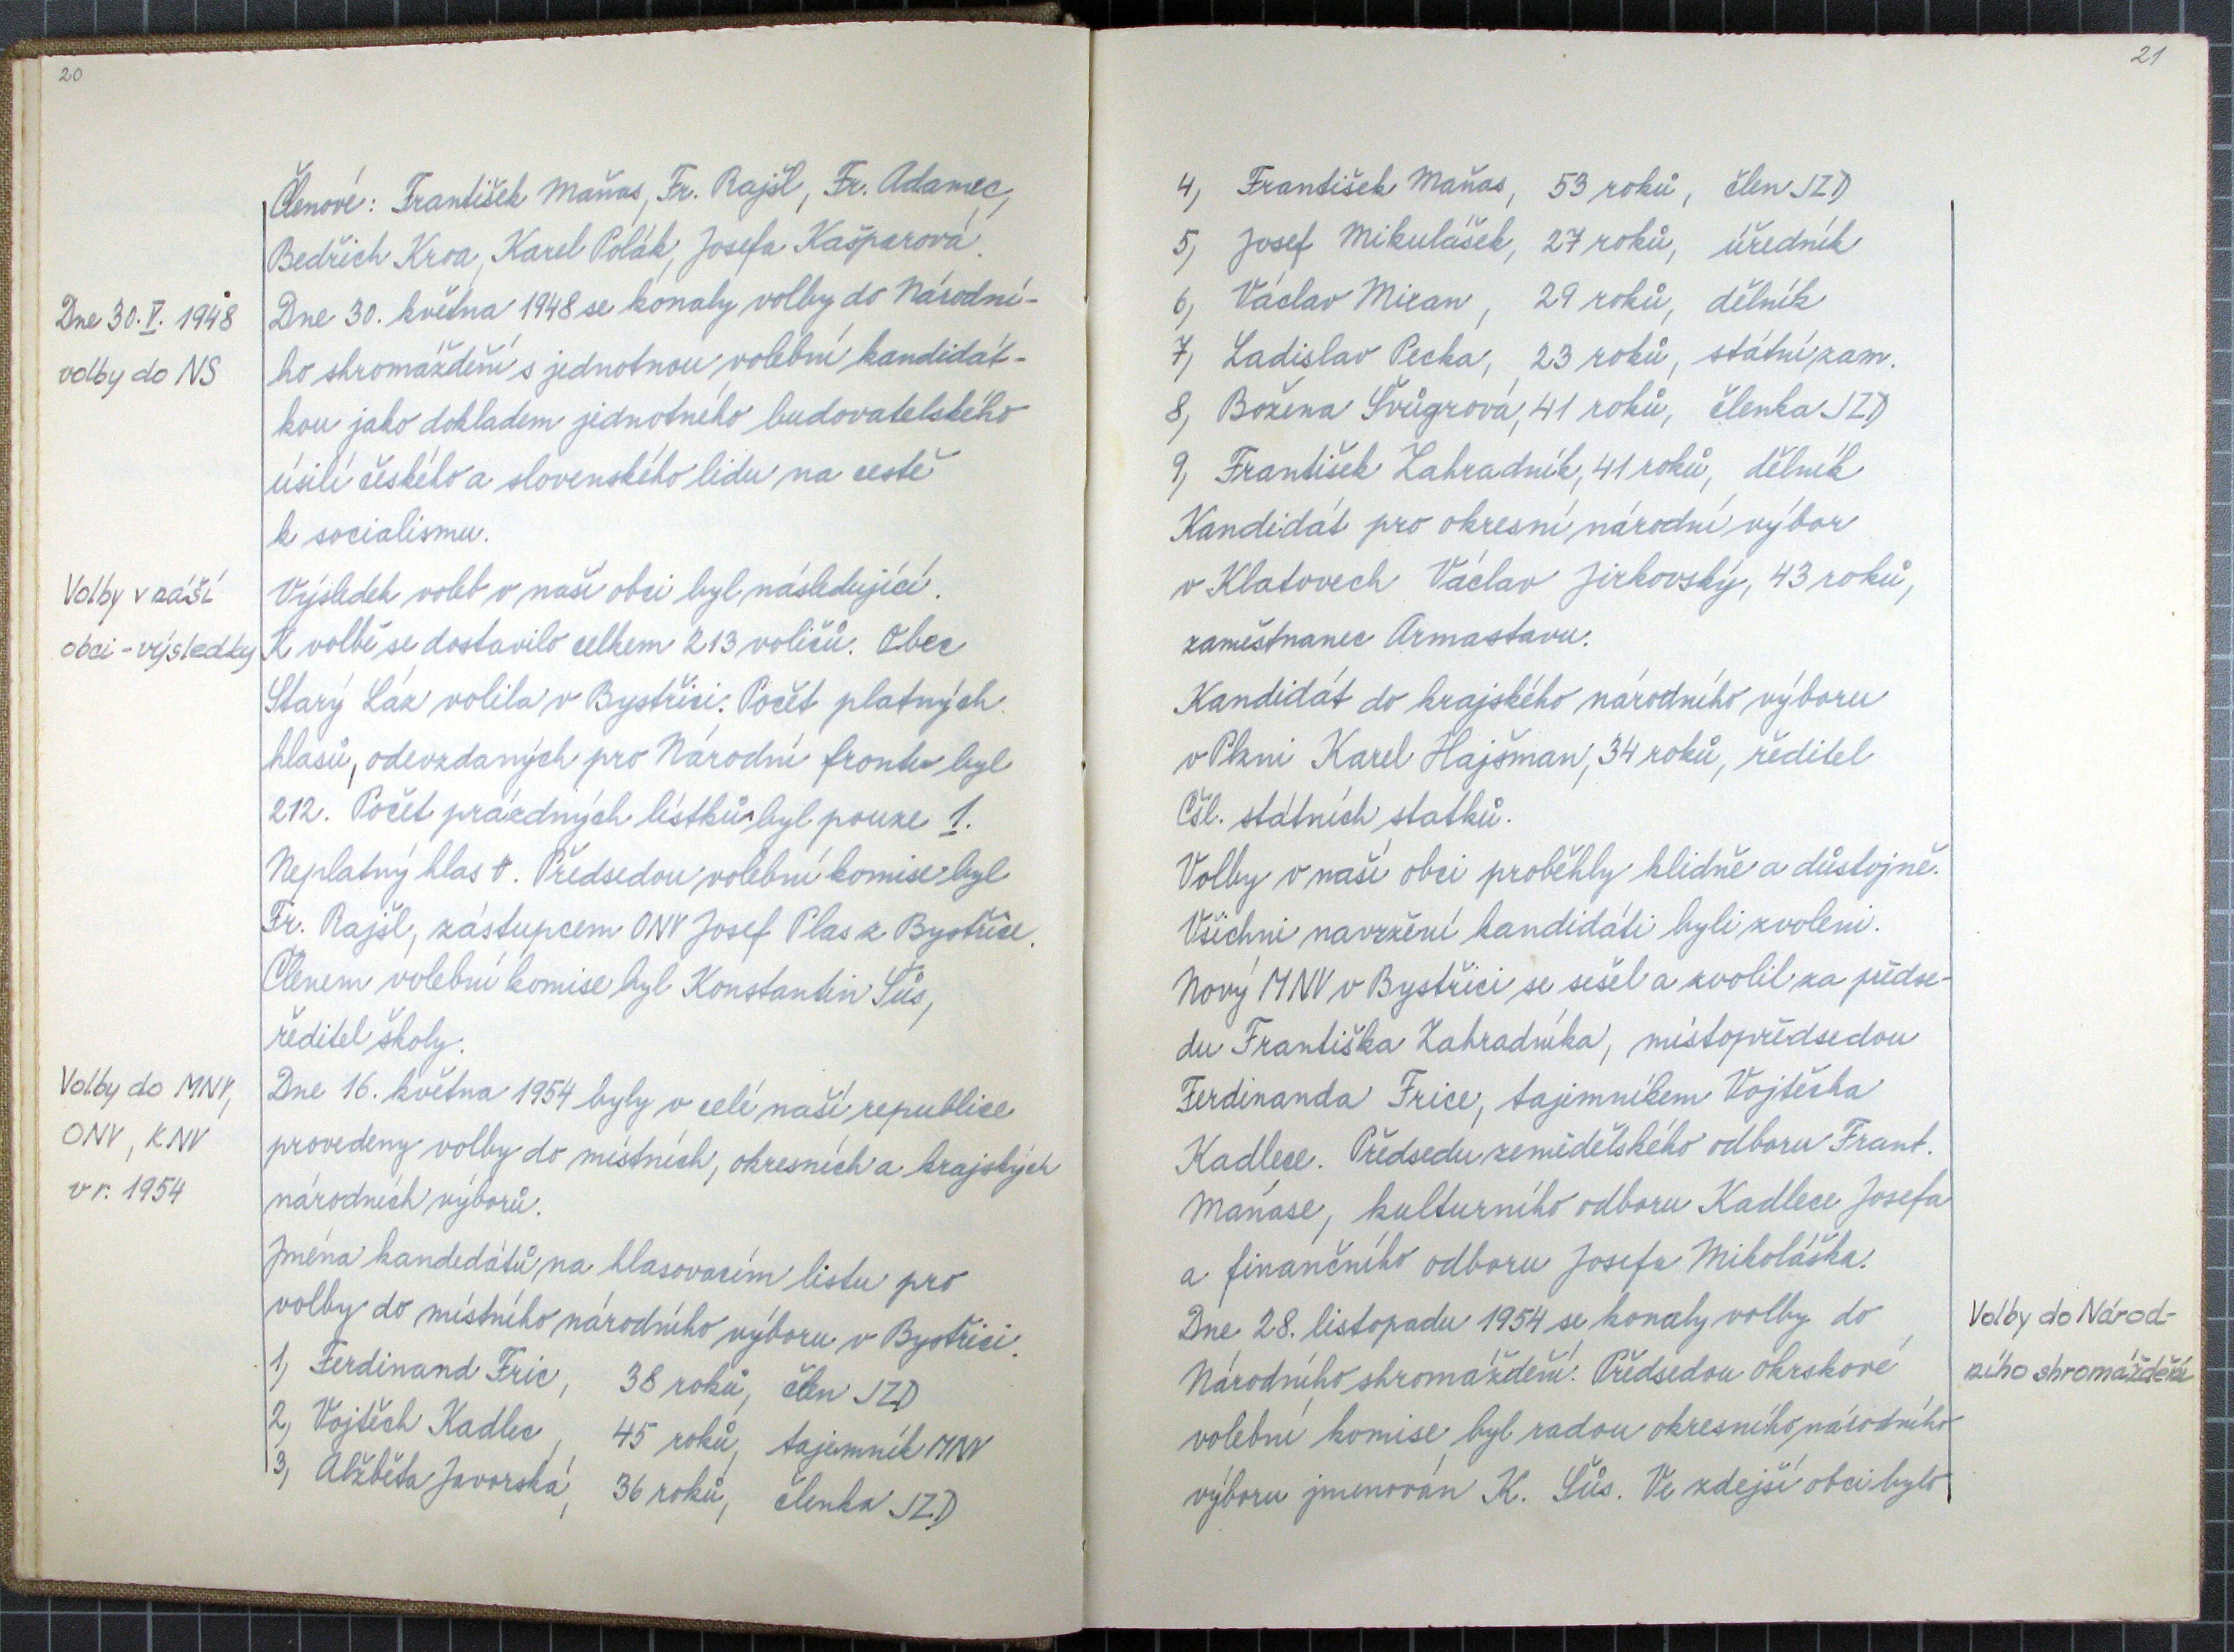 20
Členové: František Maňas, Fr. Rajšl, Fr. Adamec,
Bedřich Kroa, Karel Polák, Josefa Kašparová.
Dne 30. V. 1948
volby do NS
Dne 30. května 1948 se konaly volby do Národní-
ho shromáždění s jednotnou volební kandidát-
kou jako dokladem jednotného budovatelského
úsilí českého a slovenského lidu na cestě
k socialismu.
Volby v náší
obci - výsledky
Výsledek voleb v naší obci byl následující.
K volbě se dostavilo celkem 213 voličů. Obec
Starý Láz volila v Bystřici. Počet platných
hlasů, odevzdaných pro Národní frontu byl
212. Počet prázdných lístků byl pouze 1.
Neplatný hlas 0. Předsedou volební komise byl
Fr. Rajšl, zástupcem ONV Josef Plas z Bystřice.
Členem volební komise byl Konstantin Šůs,
ředitel školy.
Volby do MNV,
ONV, KNV
v r. 1954
Dne 16. května 1954 byly v celé naší republice
provedeny volby do místních, okresních a krajských
národních výborů.
Jména kandedátů na hlasovacím listu pro
volby do místního národního výboru v Bystřici.
1, Ferdinand Fric, 38 roků, člen JZD
2, Vojtěch Kadlec, 45 roků, tajemník MNV
3, Alžběta Javorská, 36 roků, členka JZD
21
4, František Maňas, 53 roků, člen JZD
5, Josef Mikulášek, 27 roků, úředník
6, Václav Mizan, 29 roků, dělník
7, Ladislav Pecka, 23 roků, státní zam.
8, Božena Švůgrová, 41 roků, členka JZD
9, František Zahradník, 41 roků, dělník
Kandidát pro okresní národní výbor
v Klatovech Václav Jirkovský, 43 roků,
zaměstnanec Armastavu.
Kandidát do krajského národního výboru
v Plzni Karel Hajšman, 34 roků, ředitel
Čsl. státních statků.
Volby v naší obci proběhly klidně a důstojně.
Všichni navržení kandidáti byli zvoleni.
Nový MNV v Bystřici se sešel a zvolil za předse-
du Františka Zahradníka, místopředsedou
Ferdinanda Frice, tajemníkem Vojtěcha
Kadlece. Předsedu zemědělského odboru Frant.
Maňase, kulturního odboru Kadlece Josefa
a finančního odboru Josefa Mikoláška.
Dne 28. listopadu 1954 se konaly volby do
Národního shromáždění. Předsedou okrskové
volební komise byl radou okresního národního
výboru jmenován K. Šůs. Ve zdejší obci bylo
Volby do Národ-
ního shromáždění